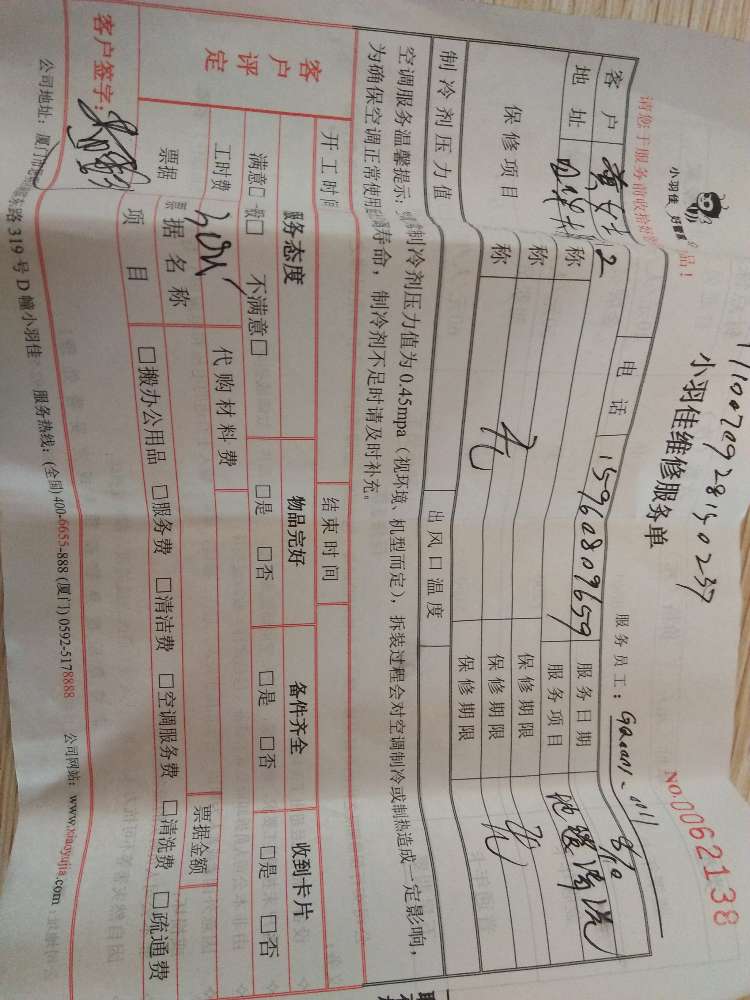 小羽佳 好管家
小羽佳维修服务单
NO.0062138
服务员工：
客户
黄女士
电话
15960809659
服务日期
8/10
地址
2
服务项目
地毯清洗
保修项目
称
保修期限
称
无
保修期限
无
称
保修期限
制冷剂压力值
出风口温度
空调服务温馨提示：制冷剂压力值为0.45mpa（视环境、机型而定），拆装过程会对空调制冷或制热造成一定影响，
为确保空调正常使用寿命，制冷剂不足时请及时补充。
开工时间
结束时间
客户评定
服务态度
物品完好
备件齐全
收到卡片
满意□ 一般□ 不满意□
□是 □否
□是 □否
□是 □否
工时费
代购材料费
票据金额
票据
票据名称
项目
□搬办公用品 □服务费 □清洁费 □空调服务费 □清洗费 □疏通费
客户签字：
公司地址：厦门市 东路319号D幢小羽佳 服务热线：(全国)400-6655-888 (厦门)0592-5178888 公司网站：www.xiaoyujia.com